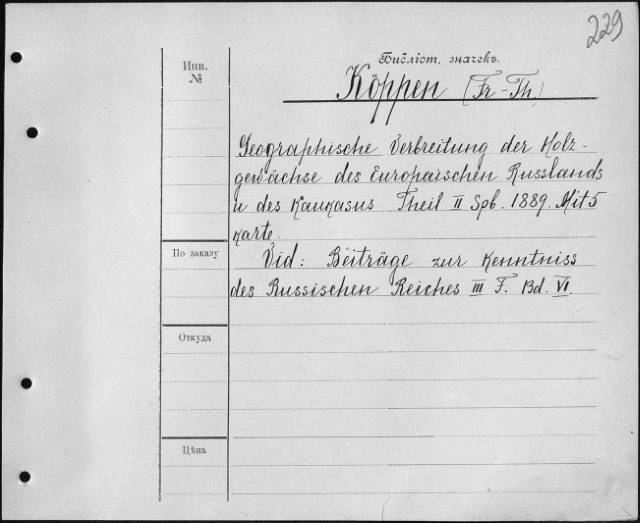 229
Инв.
№
Библіот. значекъ.
Köppen (Fr-Th)
Geographische Verbreitung der Holz-
gewächse des Europaischen Russlands
u des Kaukasus Theil II Spb. 1889. Mit 5
Karte.
По заказу
Vid: Beiträge zur Kenntniss
des Russischen Reiches III F. Bd. VI.
Откуда
Цѣна